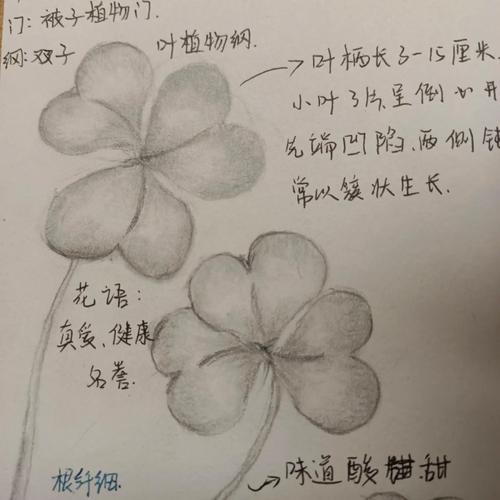 门：被子植物门.
纲：双子叶植物纲.
叶柄长3-15厘米.
小叶3片呈倒心形
先端凹陷、两侧钝
常以簇状生长.
花语：
真爱、健康
名誉.
根纤细.
味道酸甜